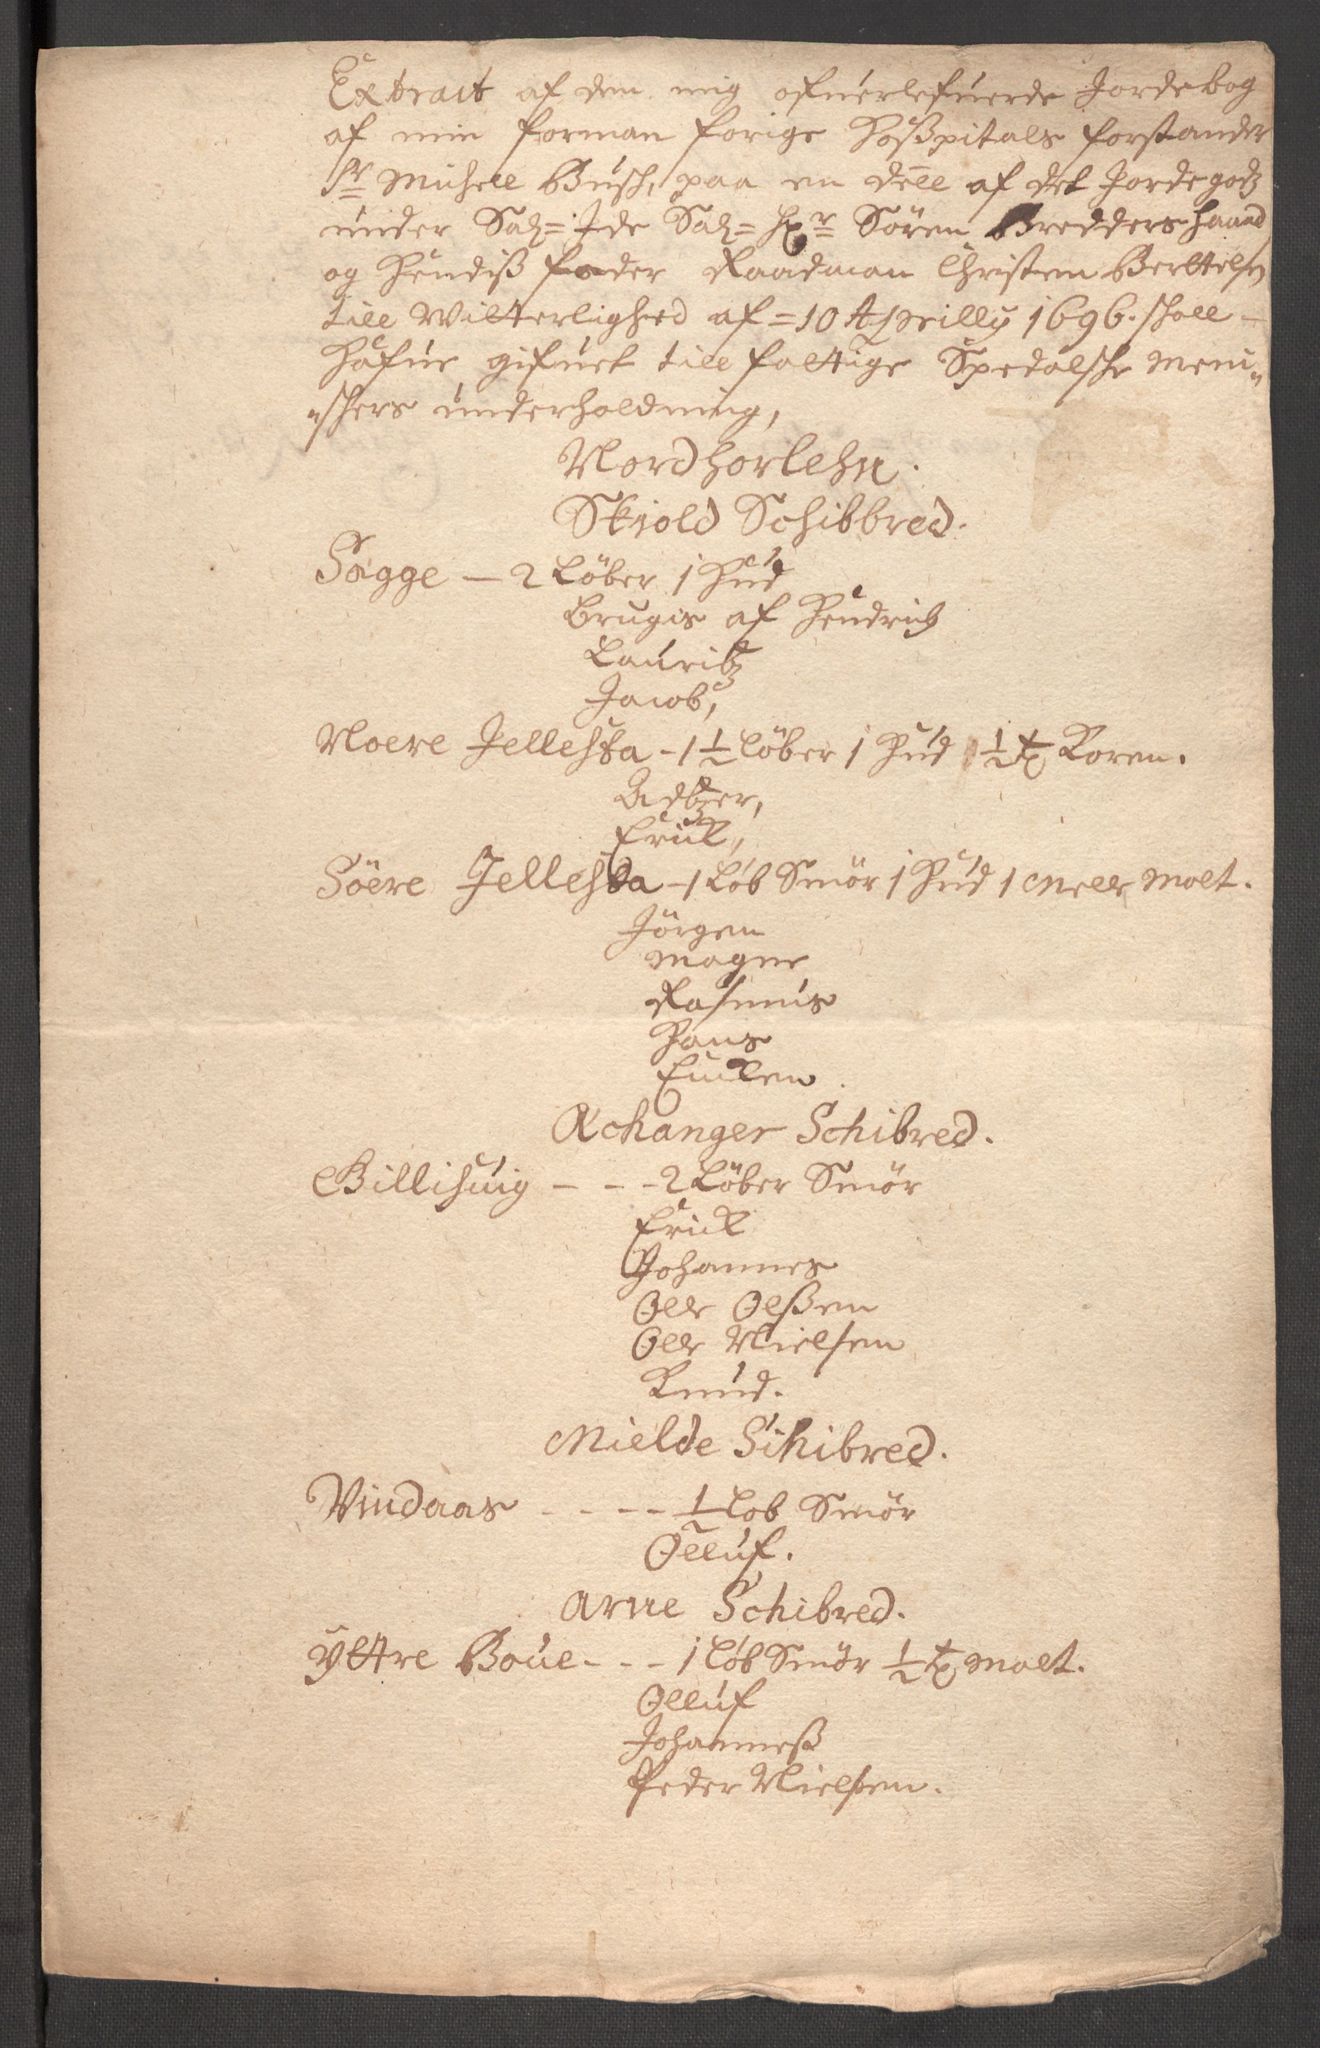 Extract af den mig ofuerlefuerde Jordebog
af min forman forige Hoßpitals forstander
Sr Michell Busch, paa en deell af det Jordegodz
under Sal= Ide Sal= Hr Sören Bredders haand
og Hendiß fader Raadman Christen Berttels
till Witterlighed af = 10 Aprilly 1696. skall -
Hafue gifuet till fattige Spedalske Meni-
skers underholdning,
Nordhorlehn.
Skiold Schibbred.
Sagge - 2 Löber 1 Hud
brugis af Hendrich
Lauritz
Jacob,
Noere Jellesta - 1 1/2 Löber 1 Hud 1/2 t Koren.
Erick,
Söere Jellesta - 1 Löb Smör 1 Hud 1 Mele Malt.
Jörgen
Magne
Rasmus
Hans
Echanger Schibred.
Billisuig - - - 2 Löber Smör
Erick
Johannes
Olle Olßen
Olle Nielsen
Knud.
Mielde Schibred.
Vindaas - - - - 1/2 Lob Smör
Olluf.
Arne Schibred.
Yttre Boue - - - 1 Löb Smör 1/2 t Malt.
Olluf
Johanneß
Peder Nielsen.